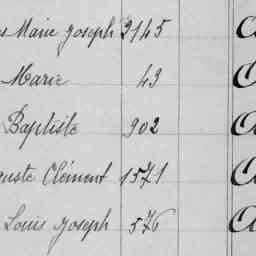 es Marie Joseph 3145
Marie 43
Baptiste 902
guste Clément 1571
Louis Joseph 576